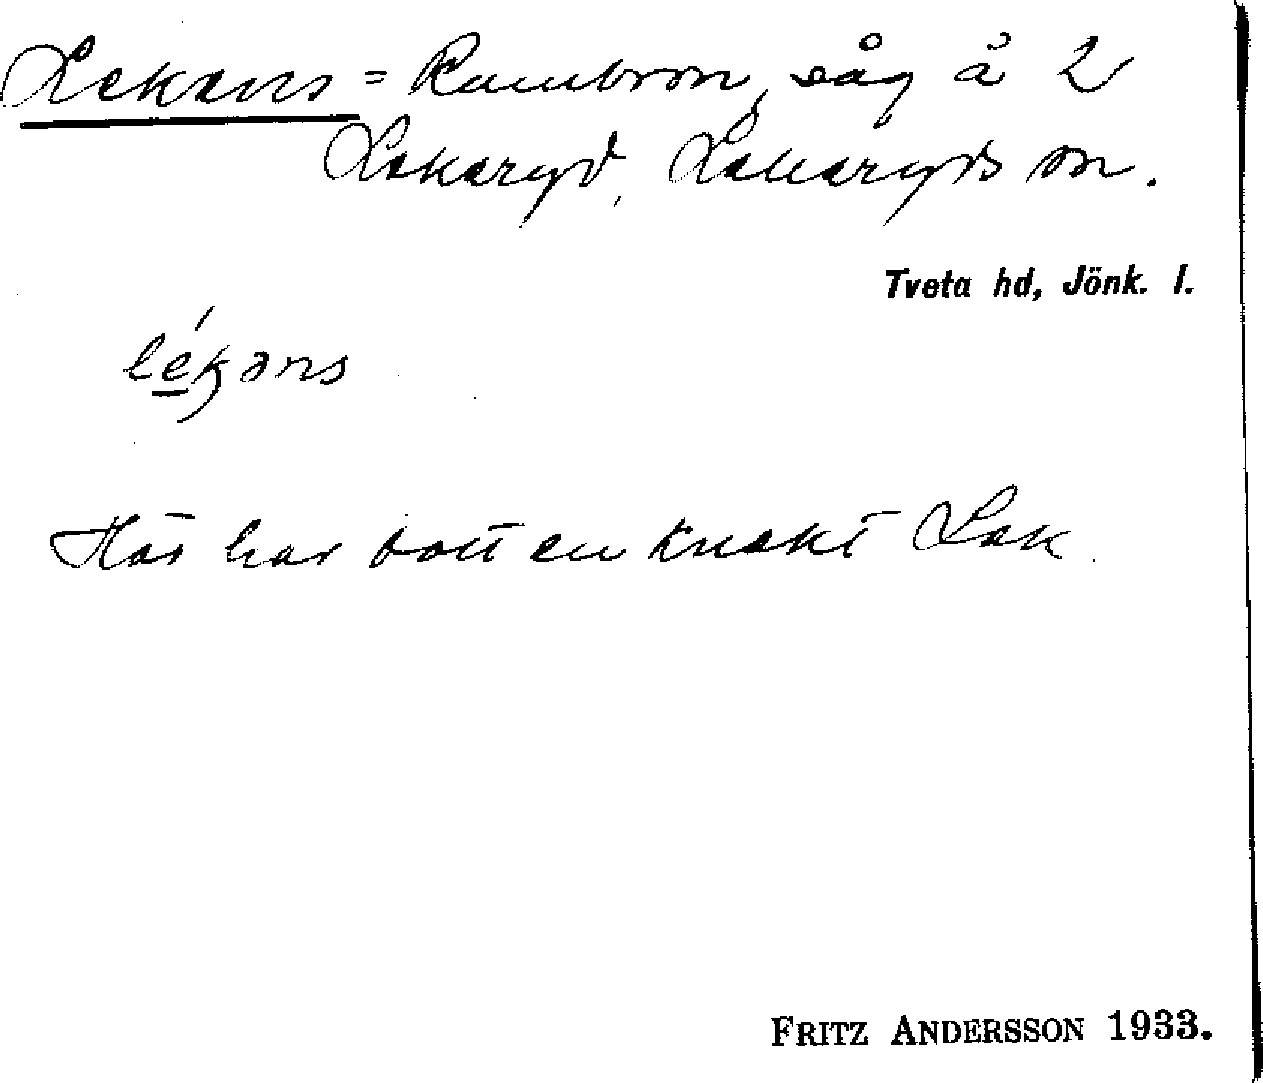 Lekens = Rambron, såg å 2
Lekeryd, Lekeryds sn.
Tveta hd, Jönk. l.
lékəns
Här har bott en knekt Lek.
FRITZ ANDERSSON 1933.